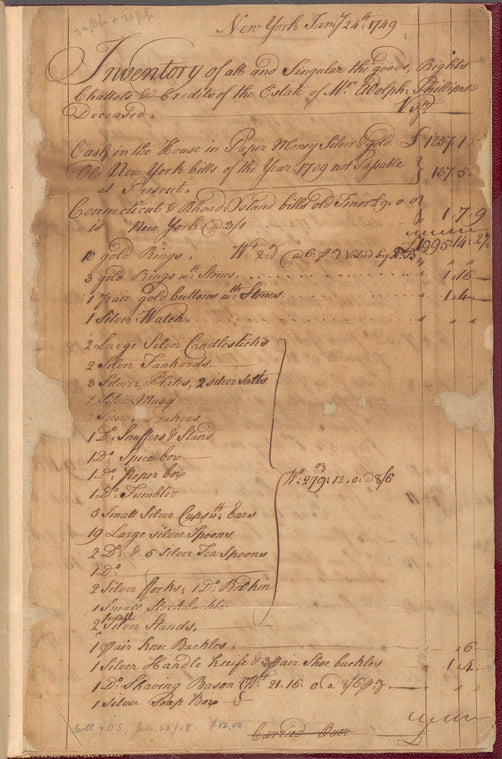 New York Jan.ry 24.th 1749
Inventory of all and Singular the goods, Rights
Chattels & Credits of the Estate of Mr. Adolph: Philipse
Deceased. Vizt.
Cash in the House in Paper Money Silver & gold £ 1257.1
Old New York bills of the Year 1709 not Passable
at Present. 157.5
Connecticut & Rhoad Island bills old Tenor
is New York @ 3/1 1.7.9
10 gold Rings. Wt.
3 gold Rings wth. Stones 1.16
1 Pair gold buttons wth. Stones 1.4
1 Silver Watch.
2 Large Silver Candlesticks
2 Silver Tankards
3 Silver Plates, 2 silver Salts
1 Mugg
1 Do. Snuffers & Stand
1 Do. Spice box
1 Do. Peper box
1 Do. Tumbler
Wt. 279: 12. 8/6
5 Small Silver Cups wth. Ears
19 Large silver Spoons
2 Do. & 6 silver Tea Spoons
1 Do.
2 Silver forks, 1 Do. Bodkin
1 Small
2 small Silver Stands.
1 Pair Knee Buckles. 6
1 Silver Handle Knife & 3 pair Shoe buckles 1.4
1 Do. Shaving Bason Wt. 21.16
1 Silver Soap Box
Carried Over
$12.00